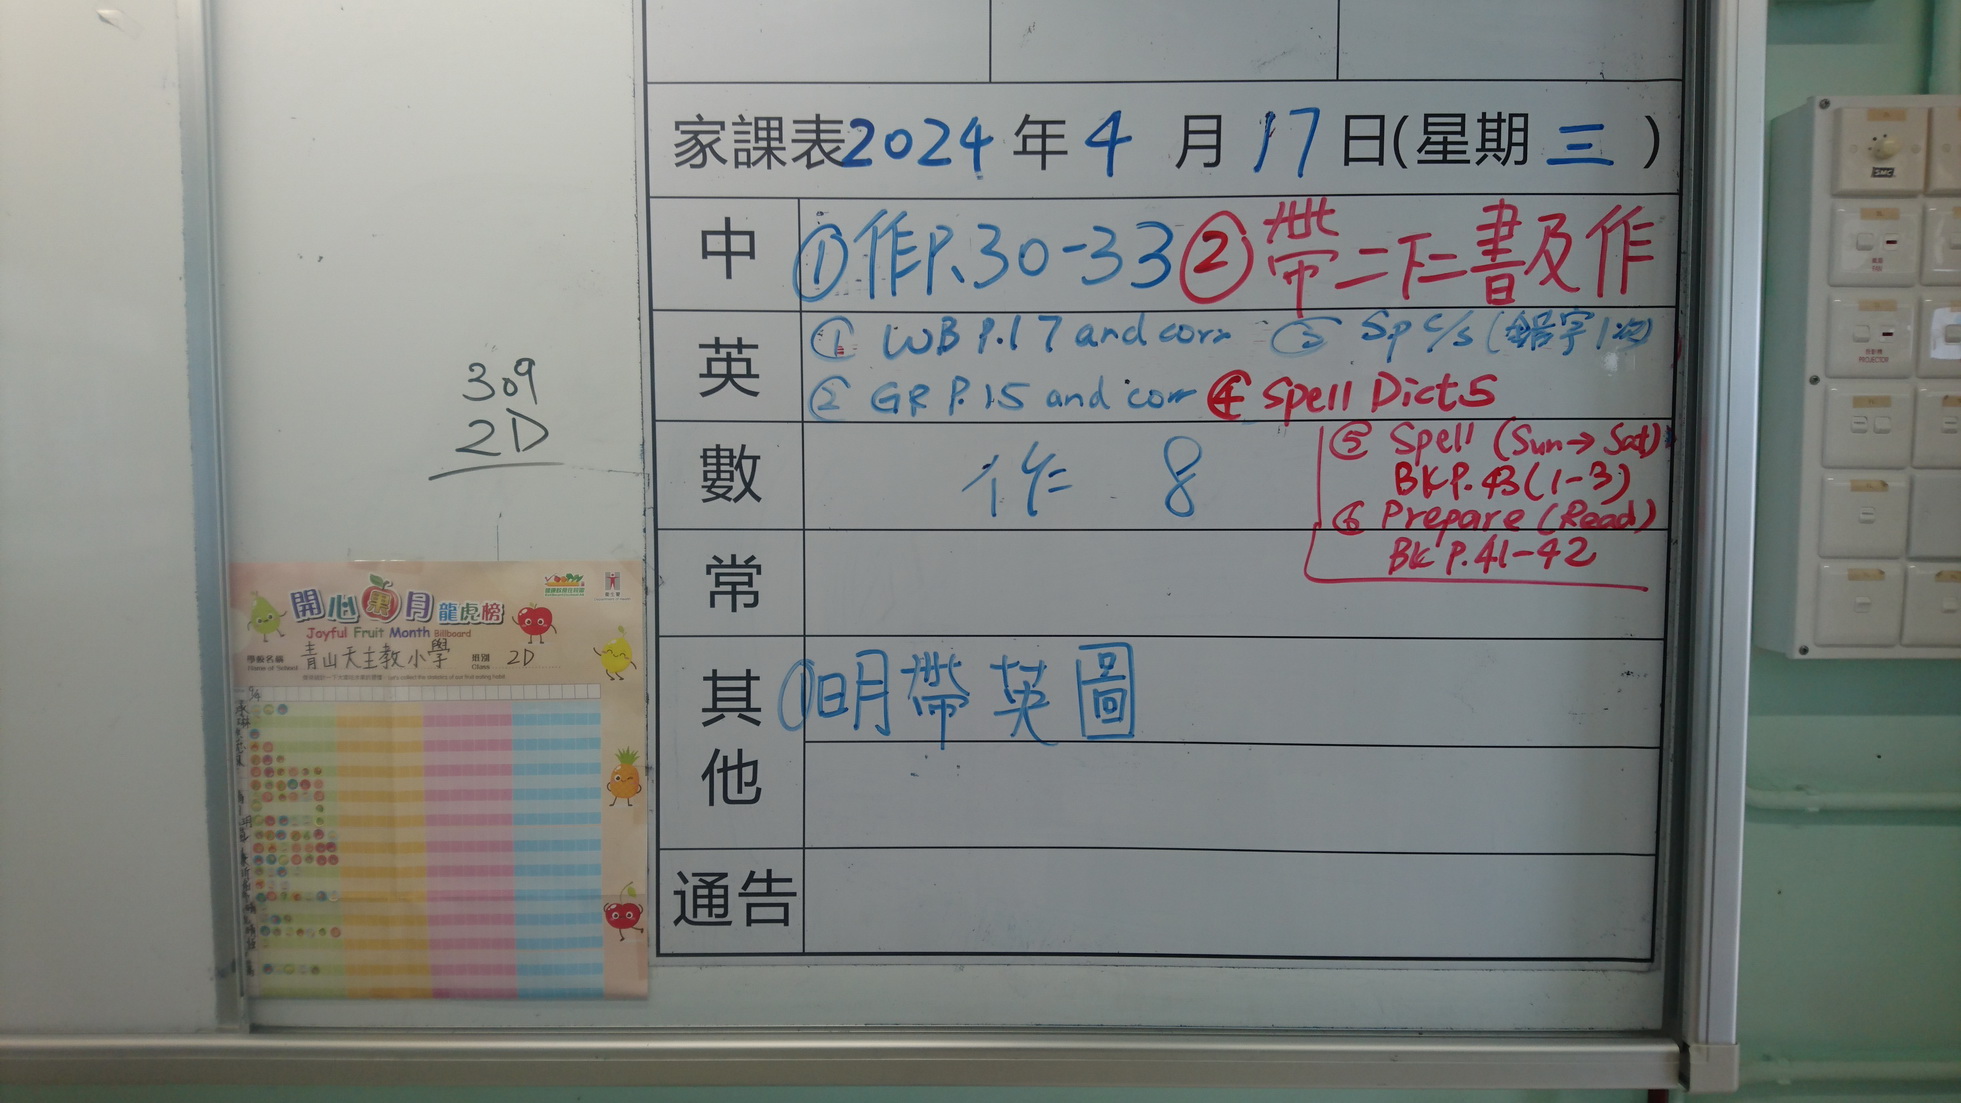 家課表2024年4月17日(星期三)
中 ①作P.30-33②帶二下二書及作
英 ① WB P.17 and corr ③ Sp c/s (錯字1次)
② GR P.15 and corr ④ Spell Dict 5
⑤ Spell (Sun→Sat)
BK P.43(1-3)
數 作 8
⑥ Prepare (Read)
BK P.41-42
常
其他 ①明帶英圖
通告
309
2D
開心果月龍虎榜
Joyful Fruit Month Billboard
學校名稱 青山天主教小學 班別 2D
Name of School Class
SMC
PROJECTOR